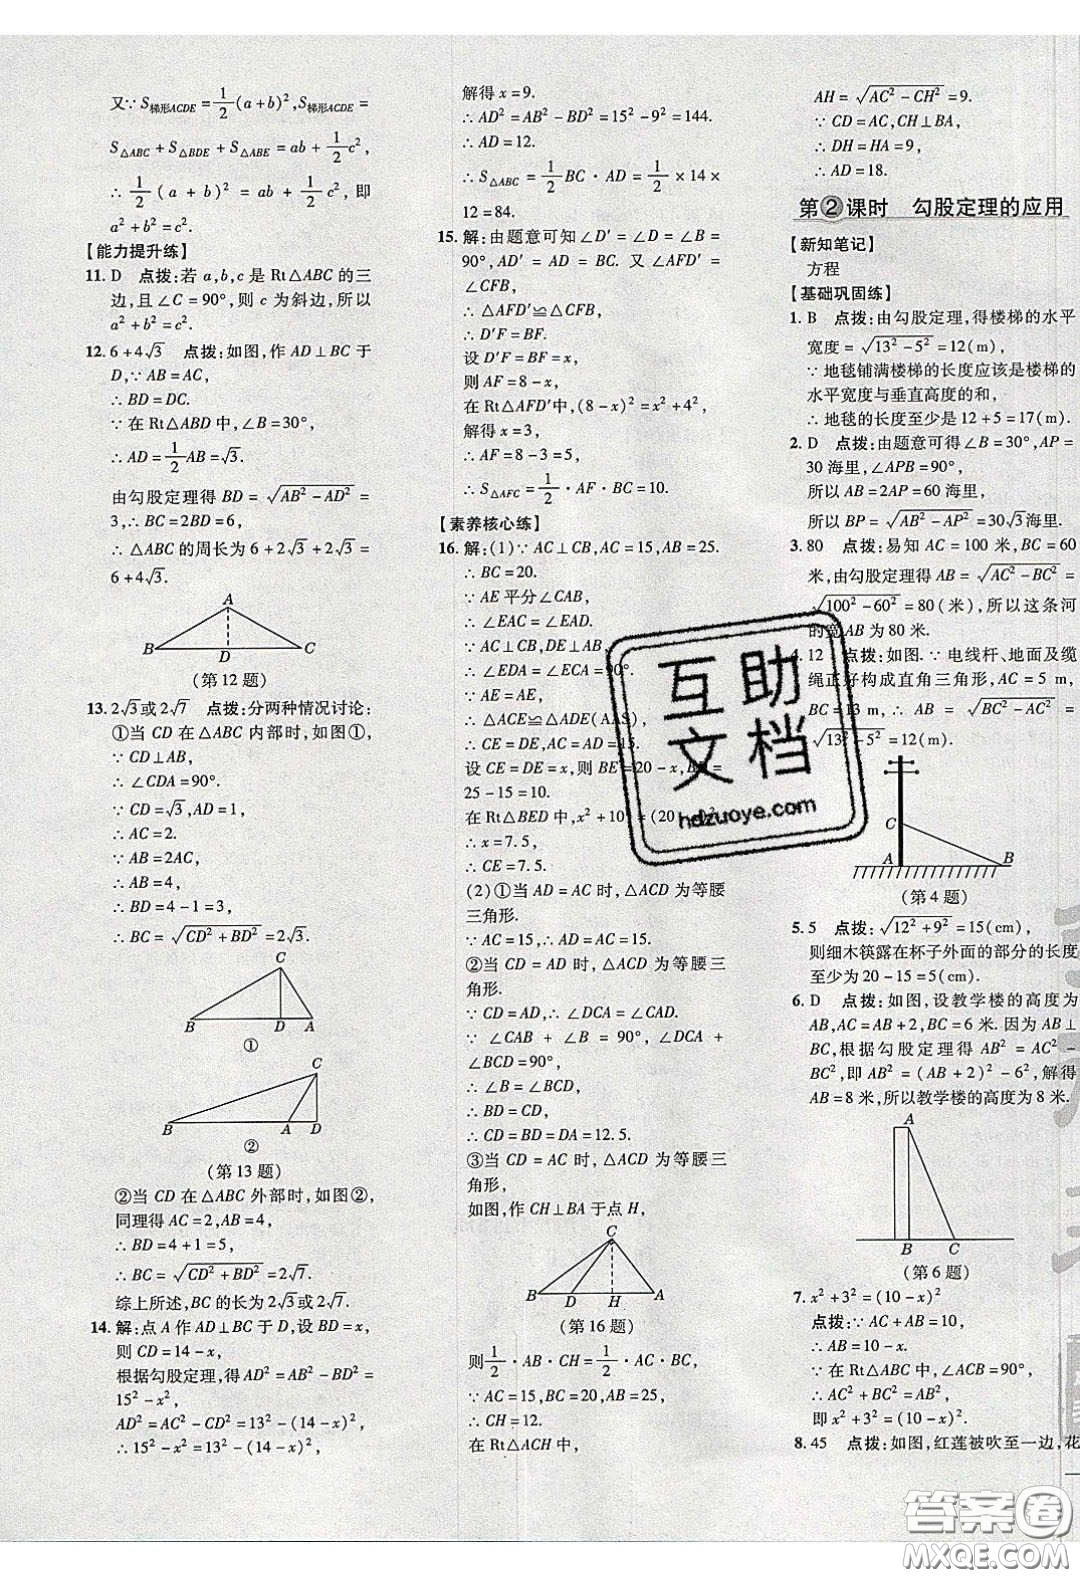 又∵S梯形ACDE=1/2(a+b)²,S梯形ACDE=
S△ABC+S△BDE+S△ABE=ab+1/2c²,
∴1/2(a+b)²=ab+1/2c²,即
a²+b²=c².
【能力提升练】
11. D 点拨:若a,b,c是Rt△ABC的三
边,且∠C=90°,则c为斜边,所以
a²+b²=c².
12. 6+4√3 点拨:如图,作AD⊥BC于
D,∵AB=AC,
∴BD=DC.
∵在Rt△ABD中,∠B=30°,
∴AD=1/2AB=√3.
由勾股定理得BD=√(AB²-AD²)=
3,∴BC=2BD=6,
∴△ABC的周长为6+2√3+2√3=
6+4√3.
A
B D C
(第12题)
13. 2√3或2√7 点拨:分两种情况讨论:
①当CD在△ABC内部时,如图①,
∵CD⊥AB,
∴∠CDA=90°.
∵CD=√3,AD=1,
∴AC=2.
∵AB=2AC,
∴AB=4.
∴BD=4-1=3,
∴BC=√(CD²+BD²)=2√3.
C
B D A
①
C
B A D
②
(第13题)
②当CD在△ABC外部时,如图②,
同理得AC=2,AB=4,
∴BD=4+1=5,
∴BC=√(CD²+BD²)=2√7.
综上所述,BC的长为2√3或2√7.
14. 解:点A作AD⊥BC于D,设BD=x,
则CD=14-x,
根据勾股定理,得AD²=AB²-BD²=
15²-x²,
AD²=AC²-CD²=13²-(14-x)²,
∴15²-x²=13²-(14-x)²,
解得x=9.
∴AD²=AB²-BD²=15²-9²=144.
∴AD=12.
∴S△ABC=1/2BC·AD=1/2×14×
12=84.
15. 解:由题意可知∠D'=∠D=∠B=
90°,AD'=AD=BC.又∠AFD'=
∠CFB,
∴△AFD'≌△CFB,
∴D'F=BF.
设D'F=BF=x,
则AF=8-x,
在Rt△AFD'中,(8-x)²=x²+4²,
解得x=3,
∴AF=8-3=5,
∴S△AFC=1/2·AF·BC=10.
【素养核心练】
16. 解:(1)∵AC⊥CB,AC=15,AB=25.
∴BC=20.
∵AE平分∠CAB,
∴∠EAC=∠EAD.
∵AC⊥CB,DE⊥AB,
∴∠EDA=∠ECA=90°.
∵AE=AE,
∴△ACE≌△ADE(AAS).
∴CE=DE,AC=AD=15.
设CE=DE=x,则BE=20-x,
25-15=10.
在Rt△BED中,x²+10²=(20-x)²
∴x=7.5,
∴CE=7.5.
(2)①当AD=AC时,△ACD为等腰
三角形.
∵AC=15,∴AD=AC=15.
②当CD=AD时,△ACD为等腰三
角形.
∵CD=AD,∴∠DCA=∠CAD.
∵∠CAB+∠B=90°,∠DCA+
∠BCD=90°,
∴∠B=∠BCD,
∴BD=CD,
∴CD=BD=DA=12.5.
③当CD=AC时,△ACD为等腰三
角形,
如图,作CH⊥BA于点H,
C
B D H A
(第16题)
则1/2·AB·CH=1/2·AC·BC,
∵AC=15,BC=20,AB=25,
∴CH=12.
在Rt△ACH中,
AH=√(AC²-CH²)=9.
∵CD=AC,CH⊥BA,
∴DH=HA=9,
∴AD=18.
第②课时 勾股定理的应用
【新知笔记】
方程
【基础巩固练】
1. B 点拨:由勾股定理,得楼梯的水平
宽度=√(13²-5²)=12(m),
∵地毯铺满楼梯的长度应该是楼梯的
水平宽度与垂直高度的和,
∴地毯的长度至少是12+5=17(m).
2. D 点拨:由题意可得∠B=30°,AP=
30海里,∠APB=90°,
所以AB=2AP=60海里,
所以BP=√(AB²-AP²)=30√3海里.
3. 80 点拨:易知AC=100米,BC=60
米,由勾股定理得AB=√(AC²-BC²)=
√(100²-60²)=80(米),所以这条河
的宽AB为80米.
4. 12 点拨:如图.∵电线杆、地面及缆
绳正好构成直角三角形,AC=5 m,
BC=13 m,∴AB=√(BC²-AC²)=
√(13²-5²)=12(m).
C
A B
(第4题)
5. 5 点拨:√(12²+9²)=15(cm),
则细木筷露在杯子外面的部分的长度
至少为20-15=5(cm).
6. D 点拨:如图,设教学楼的高度为
AB,AC=AB+2,BC=6米.因为AB⊥
BC,根据勾股定理得AB²=AC²-
BC²,即AB²=(AB+2)²-6²,解得
AB=8米,所以教学楼的高度为8米.
A
B C
(第6题)
7. x²+3²=(10-x)²
点拨:∵AC+AB=10,
∴AB=10-x.
∵在Rt△ABC中,∠ACB=90°,
∴AC²+BC²=AB²,
即x²+3²=(10-x)².
8. 45 点拨:如图,红莲被吹至一边,花
互助
文档
hdzuoye.com
答案圈
MXQE.COM